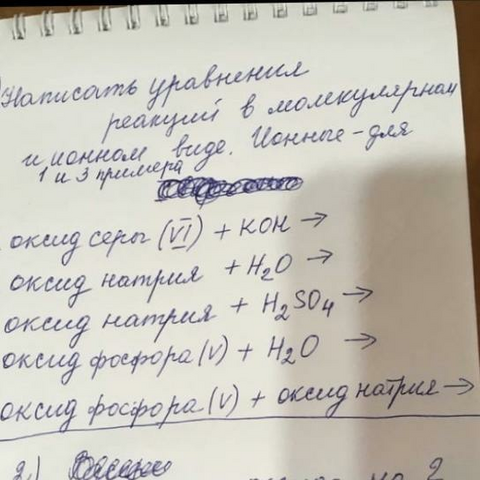 Написать уравнения
реакций в молекулярном
и ионном виде. Ионные - для
1 и 3 примера
оксид серы (VI) + KOH →
оксид натрия + H₂O →
оксид натрия + H₂SO₄ →
оксид фосфора (V) + H₂O →
оксид фосфора (V) + оксид натрия →
2.)
на 2